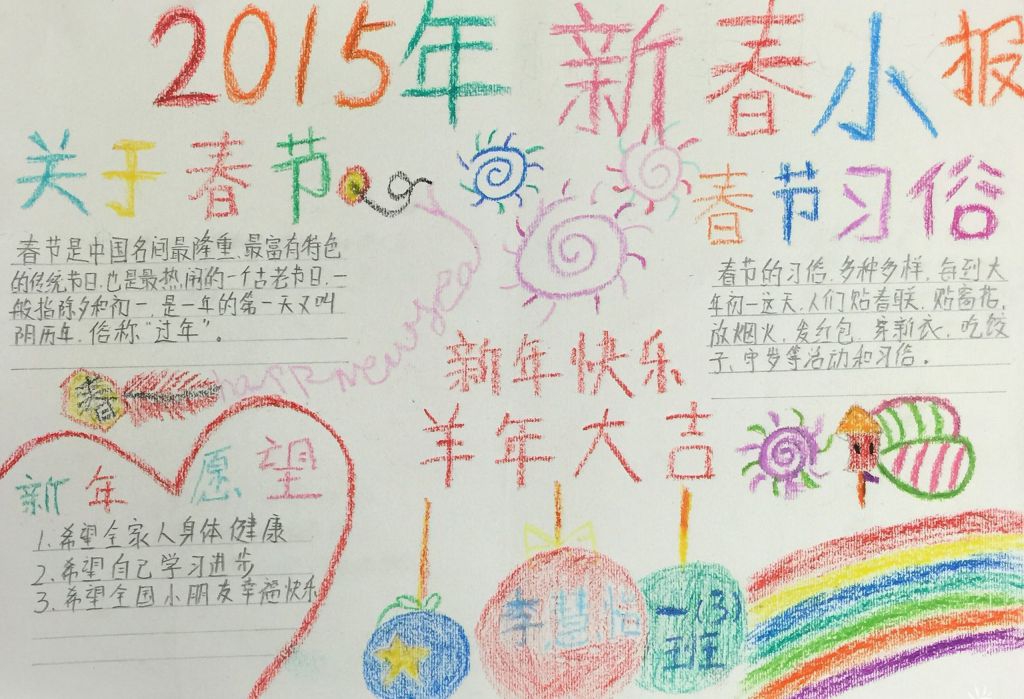 2015年新春小报
关于春节
春节是中国名间最隆重、最富有特色
的传统节日,也是最热闹的一个古老节日,一
般指除夕和初一,是一年的第一天又叫
阴历年,俗称“过年”。
春节习俗
春节的习俗,多种多样,每到大
年初一这天,人们贴春联、贴窗花,
放烟火,发红包,穿新衣、吃饺
子、守岁等活动和习俗。
happy new year
春
新年快乐
羊年大吉
新年愿望
1.希望全家人身体健康
2.希望自己学习进步
3.希望全国小朋友幸福快乐
李慧怡
一(3)
班